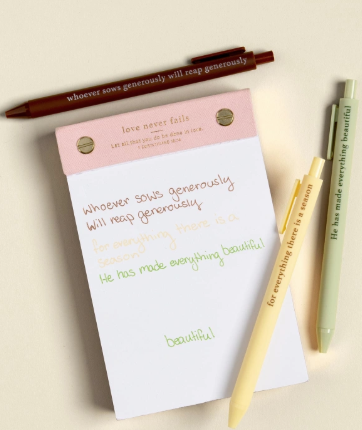 whoever sows generously will reap generously
love never fails
Let all that you do be done in love
whoever sows generously
will reap generously
for everything there is a
season
He has made everything beautiful
beautiful
for everything there is a season
He has made everything beautiful